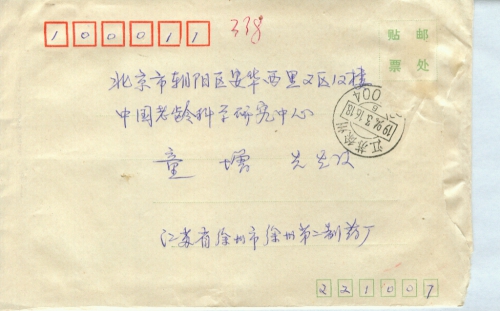 100011
338
贴邮
票处
北京市朝阳区安华西里又区12楼
中国老龄科学研究中心
童增 先生收
江苏徐州
1994.3.16.18
004
江苏省徐州市徐州第二制药厂
221007